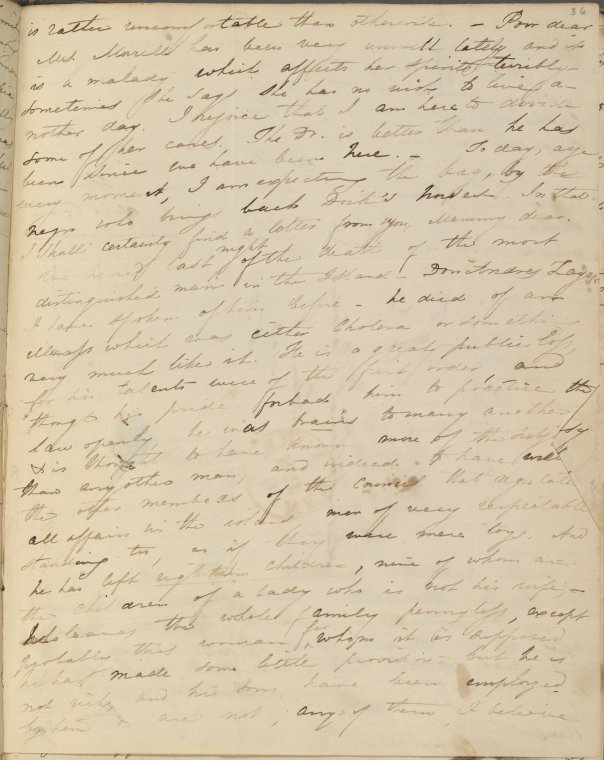 36
is rather uncomfortable than otherwise. — Poor dear
Mrs. Morrell has been very unwell lately and it
is a malady which affects her spirits terribly
sometimes she says she has no wish to live a-
nother day. I rejoice that I am here to divide
some of her cares. The Dr. is better than he has
been since we have been here. — To day, aye
every moment, I am expecting the bag, by the
negro who brings back Dick's horse. In that
I shall certainly find a letter from you, Mammy dear.
We heard last night of the death of the most
distinguished man in the Island, Don Andres
I have spoken of him before — he died of an
illness which was either Cholera or something
very much like it. He is a great public loss,
for his talents were of the first order, and
thong his pride forbad him to practice the
law openly, he was brains to many another
& is thought to have known more of the
than any other man, and indeed to have
the other members of the council that regulate
all affairs in the island men of very respectable
standing too, as if they were mere toys. And
he has left eighteen children, nine of whom are
the children of a lady who is not his wife —
he leaves the whole family pennyless, except
probably this woman for whom it is supposed
he has made some little provision but he is
not rich, and his sons have been employed
by him & are not, any of them, I believe